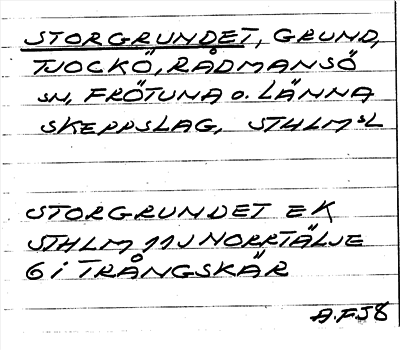 STORGRUNDET, GRUND,
TJOCKÖ, RÅDMANSÖ
SN, FRÖTUNA O. LÄNNA
SKEPPSLAG, STHLM SL
STORGRUNDET EK
STHLM 11J NORRTÄLJE
6 i TRÅNGSKÄR
A.F58